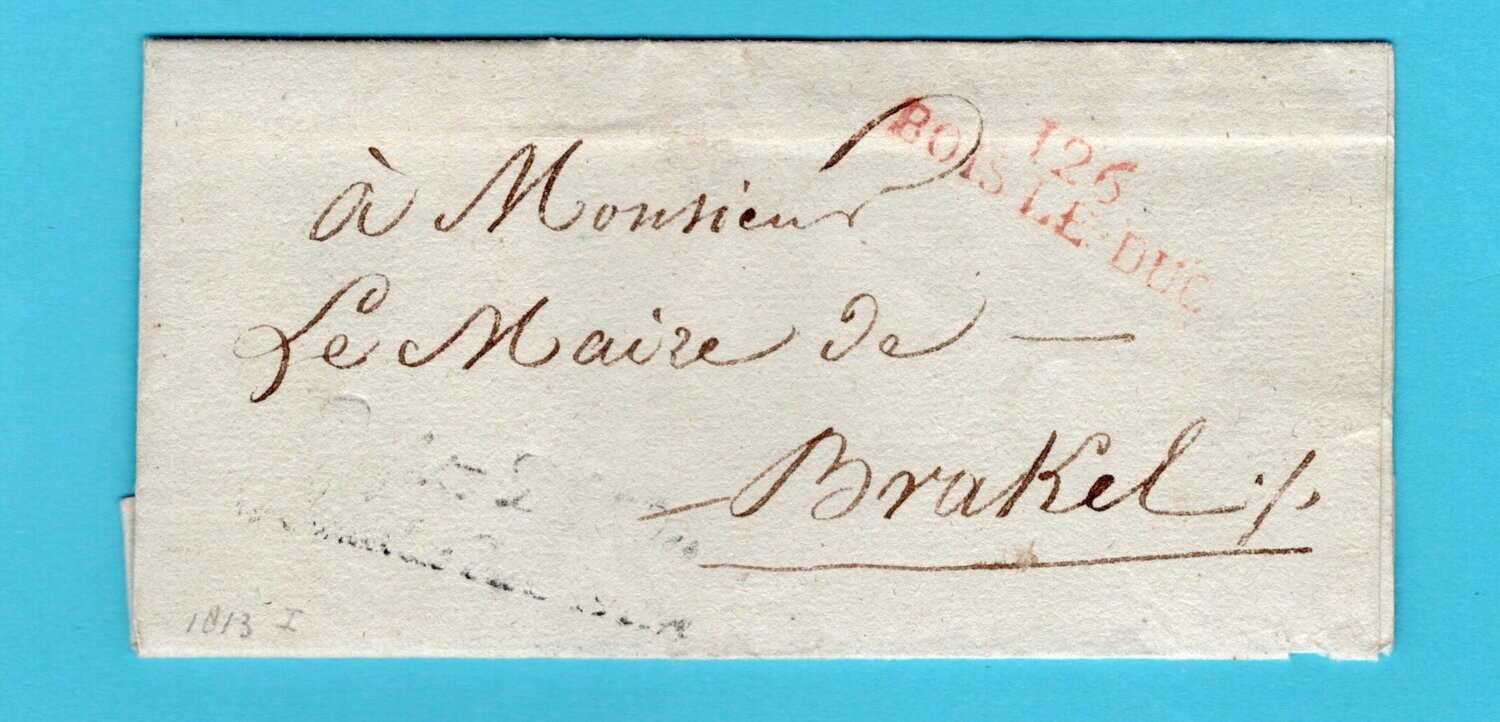 126
BOIS-LE-DUC
à Monsieur
Le Maire de —
Brakel ./.
1813 I